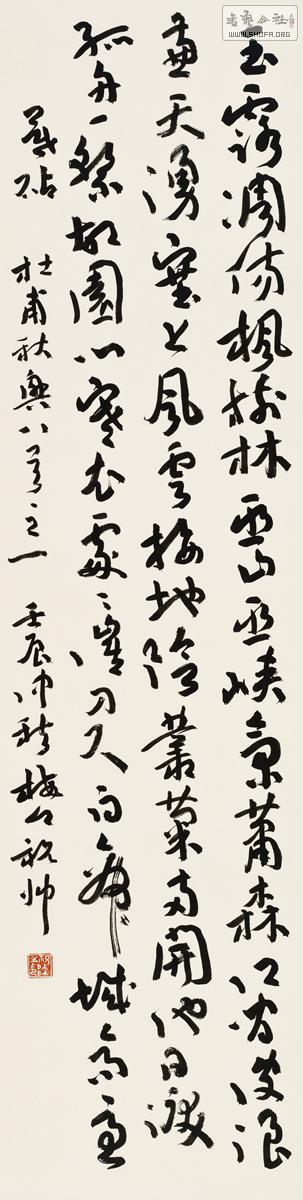 書藝公社
WWW.SHUFA.ORG
玉露凋傷楓樹林巫山巫峽氣蕭森江間波浪
兼天湧塞上風雲接地陰叢菊兩開他日淚
孤舟一繫故園心寒衣處〻催刀尺白帝城高急
暮砧 杜甫秋興八首之一 壬辰仲秋 祝帥